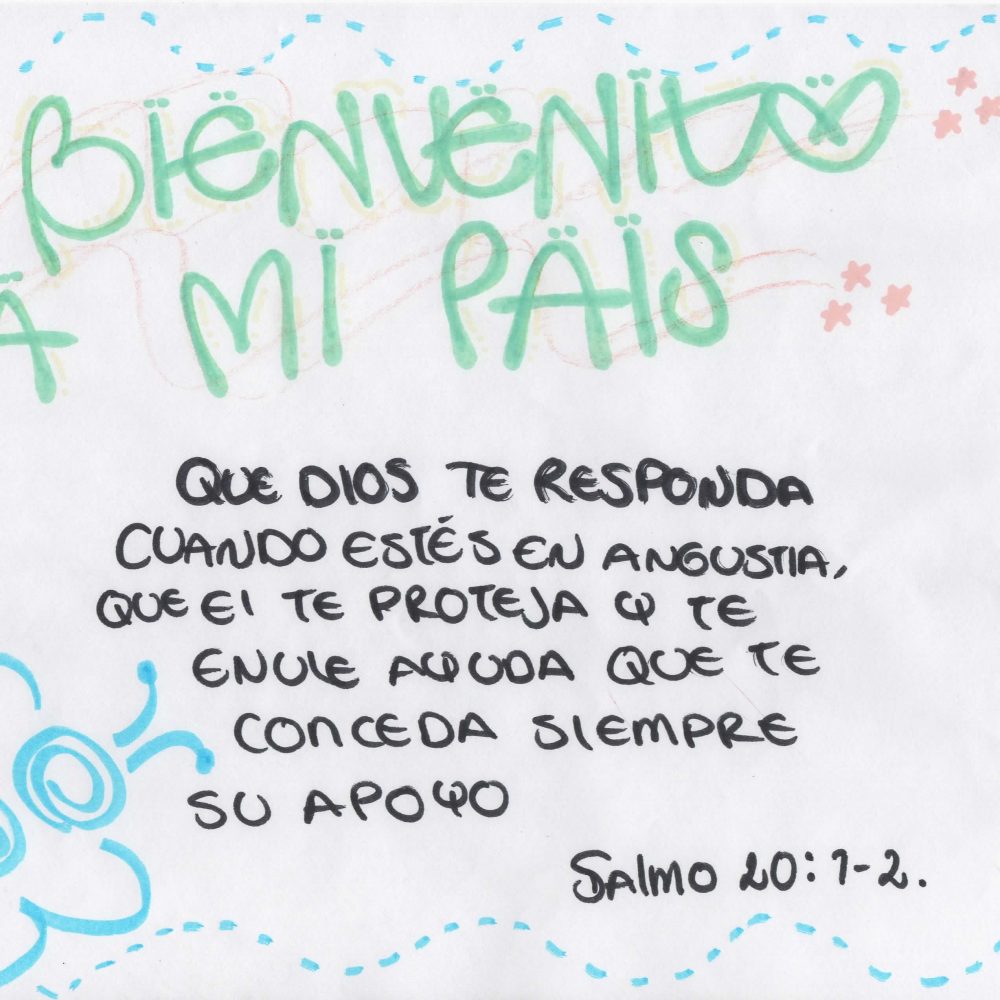 BIENVENITO
A MI PAIS
QUE DIOS TE RESPONDA
CUANDO ESTÉS EN ANGUSTIA,
QUE EI TE PROTEJA Y TE
ENVIE AYUDA QUE TE
CONCEDA SIEMPRE
SU APOYO
SAlMO 20:1-2.